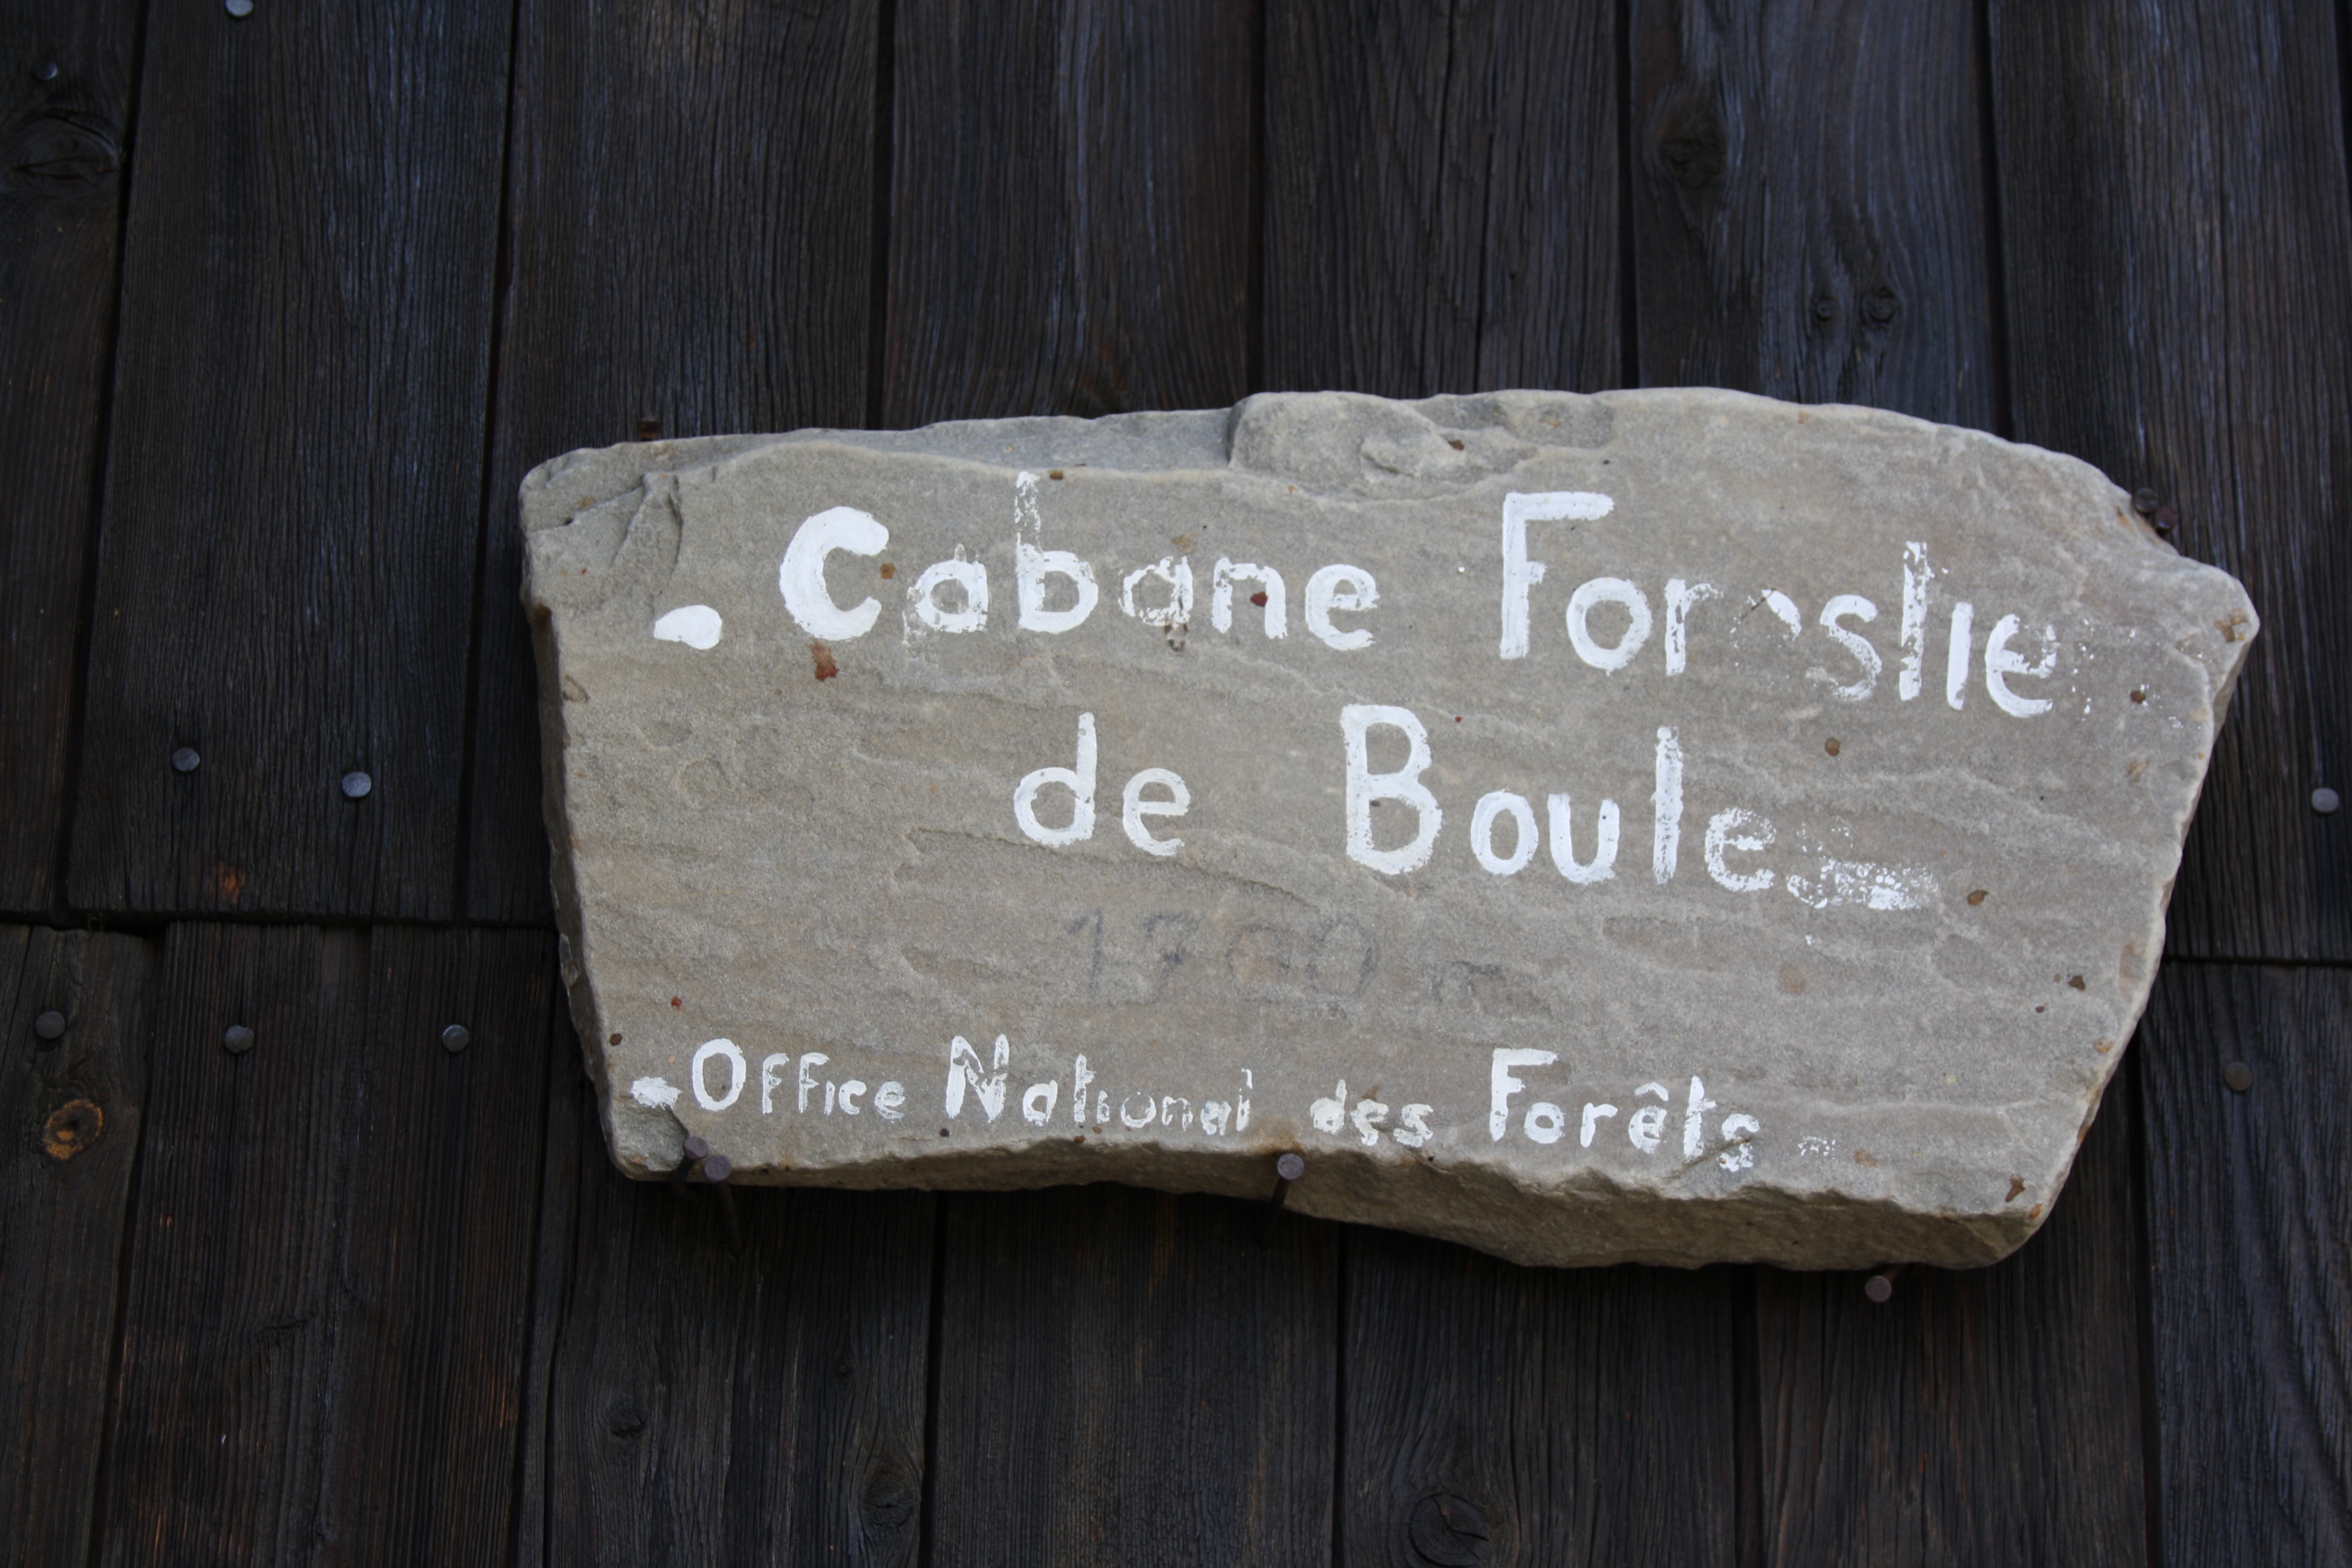 Cabane Forestie
de Boule
1700 m
Office National des Forêts